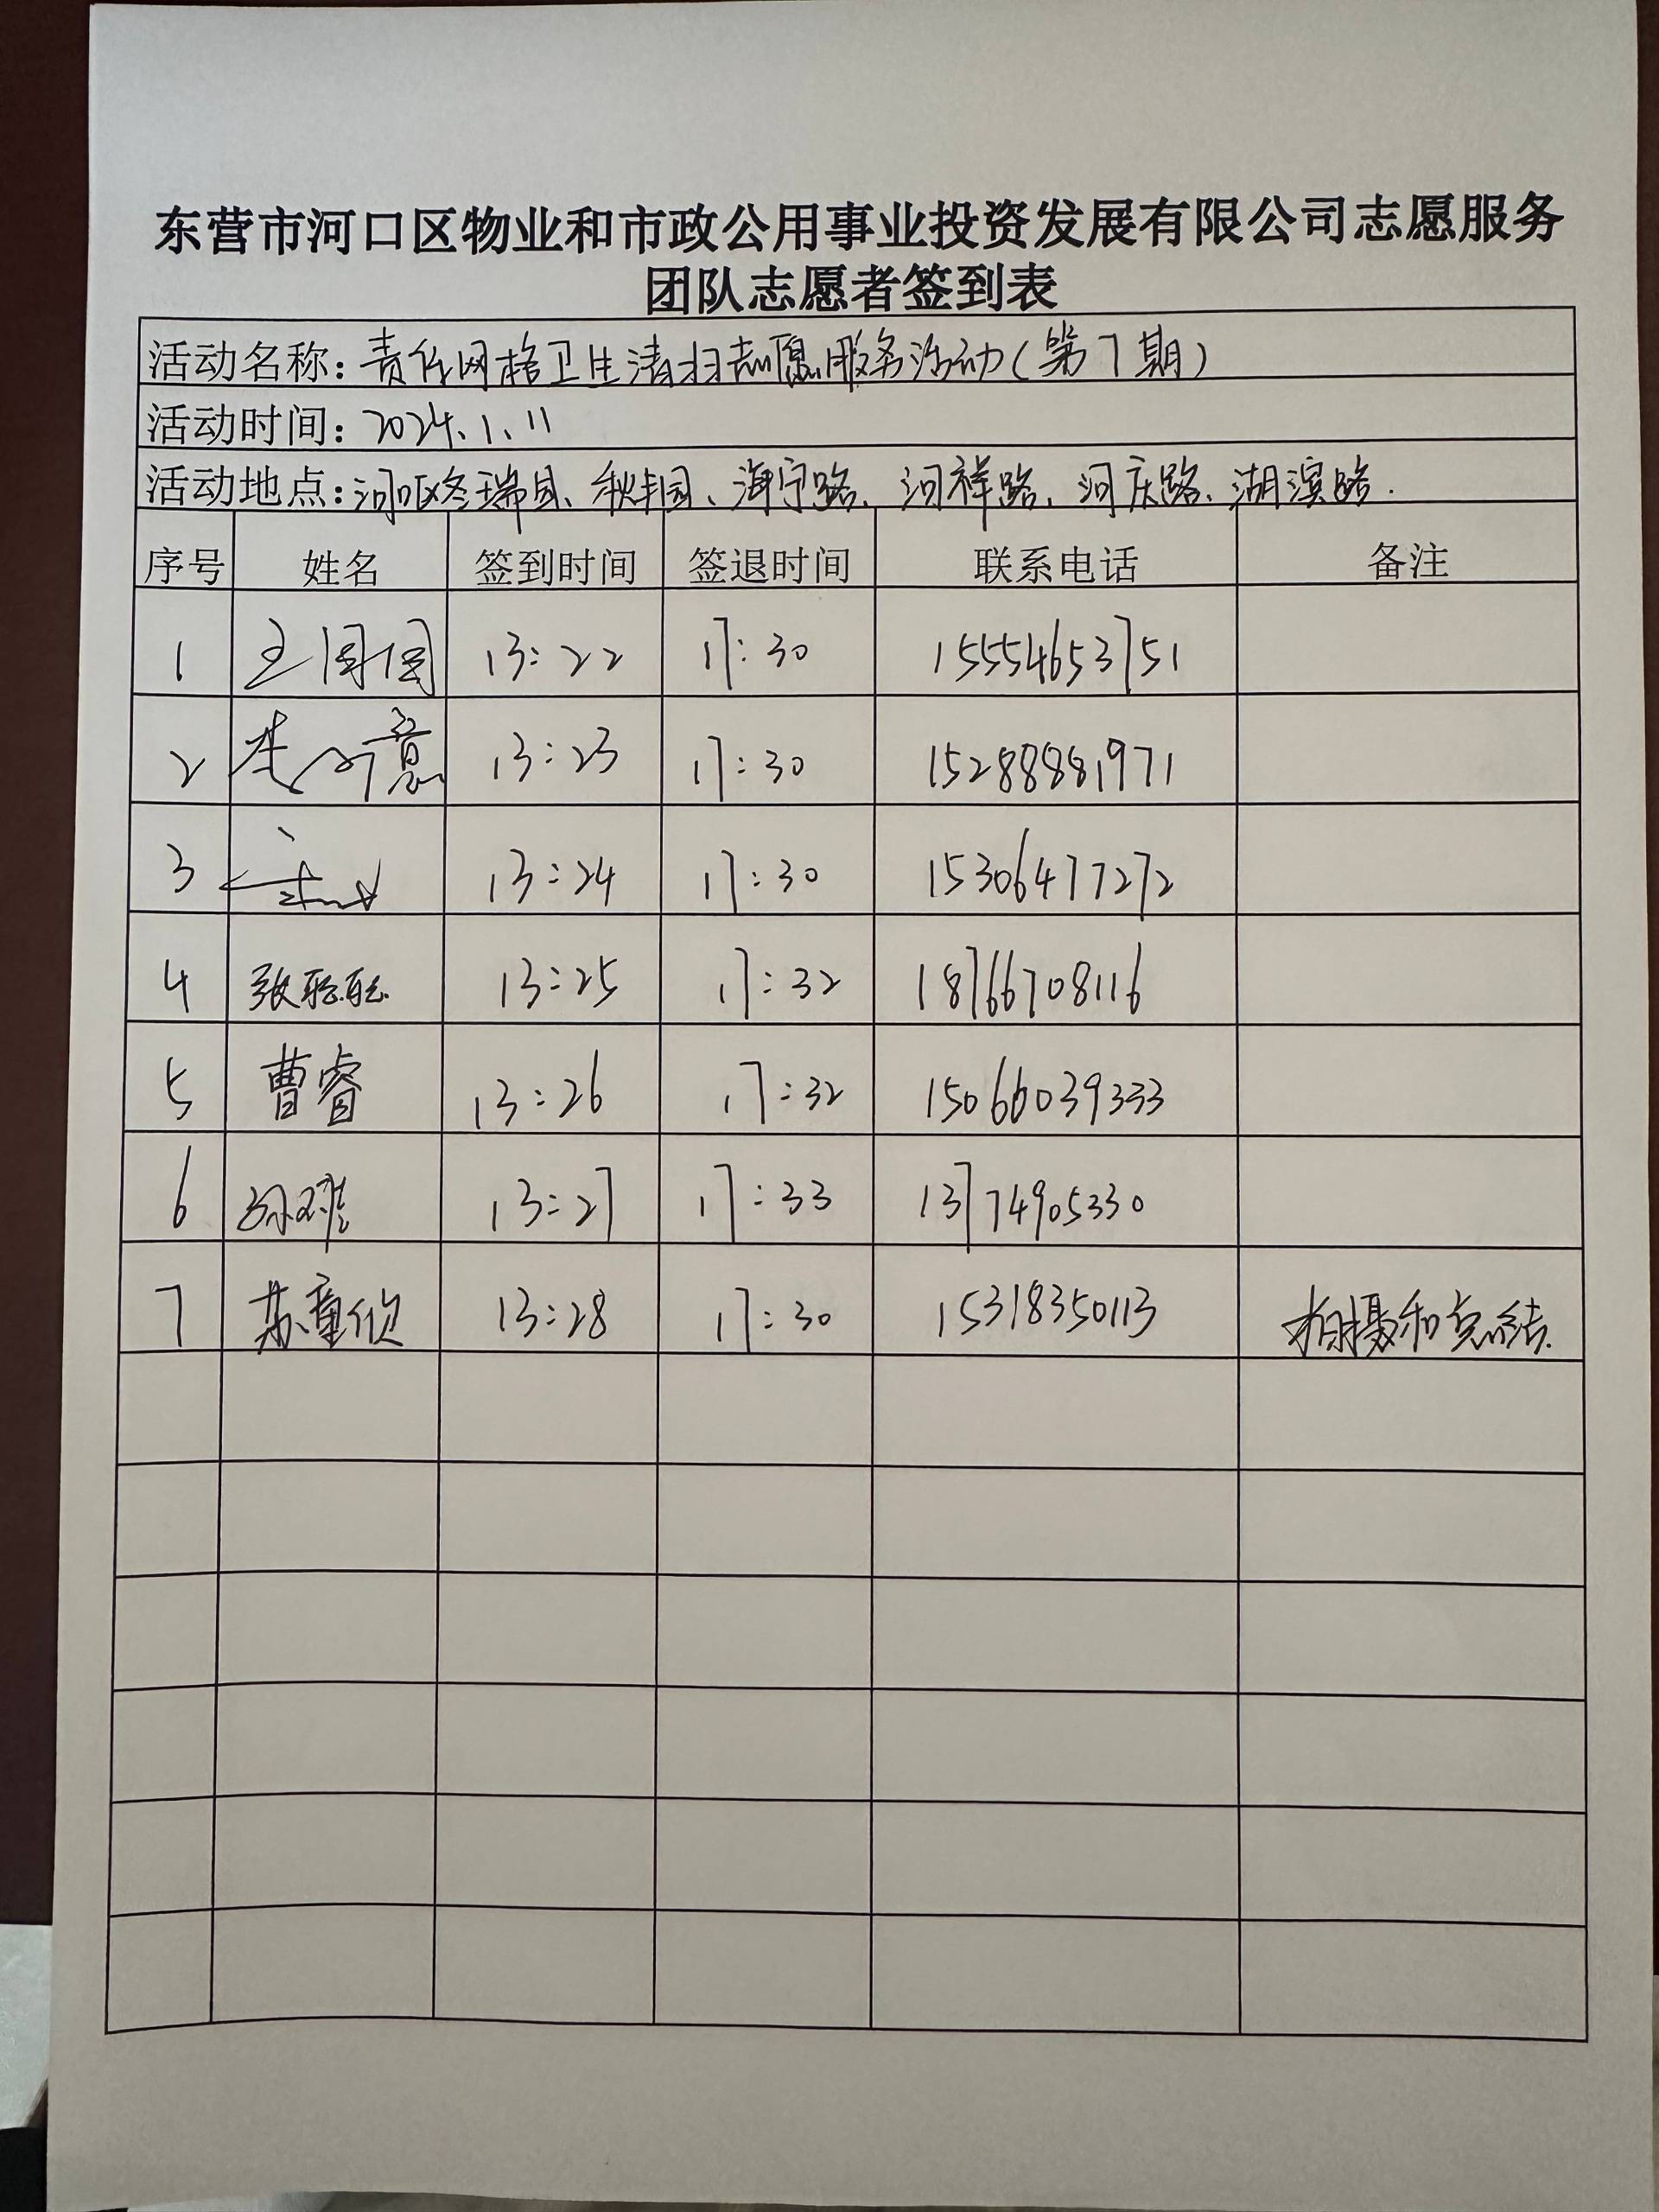 东营市河口区物业和市政公用事业投资发展有限公司志愿服务
团队志愿者签到表
活动名称：责任网格卫生清扫志愿服务活动（第7期）
活动时间：2024.1.11
活动地点：河口区冬瑞园、秋丰园、海宁路、河祥路、河庆路、湖滨路.
序号 姓名 签到时间 签退时间 联系电话 备注
1 王園園 13:22 17:30 15554653751
2 13:23 17:30 15288881971
3 13:24 17:30 15306477272
4 张聪聪 13:25 17:32 18766708116
5 曹睿 13:26 17:32 15066039333
6 13:27 17:33 13774905330
7 苏童欣 13:28 17:30 15318350113 拍摄和总结.